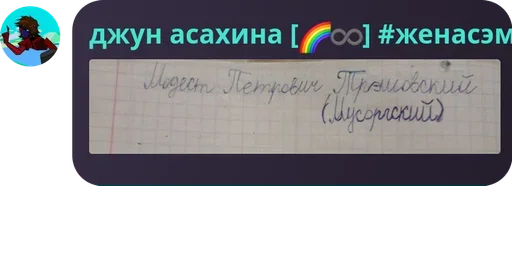 джун асахина [🌈♾️] #женасэм
Модест Петрович Трэшовский
(Мусоргский)